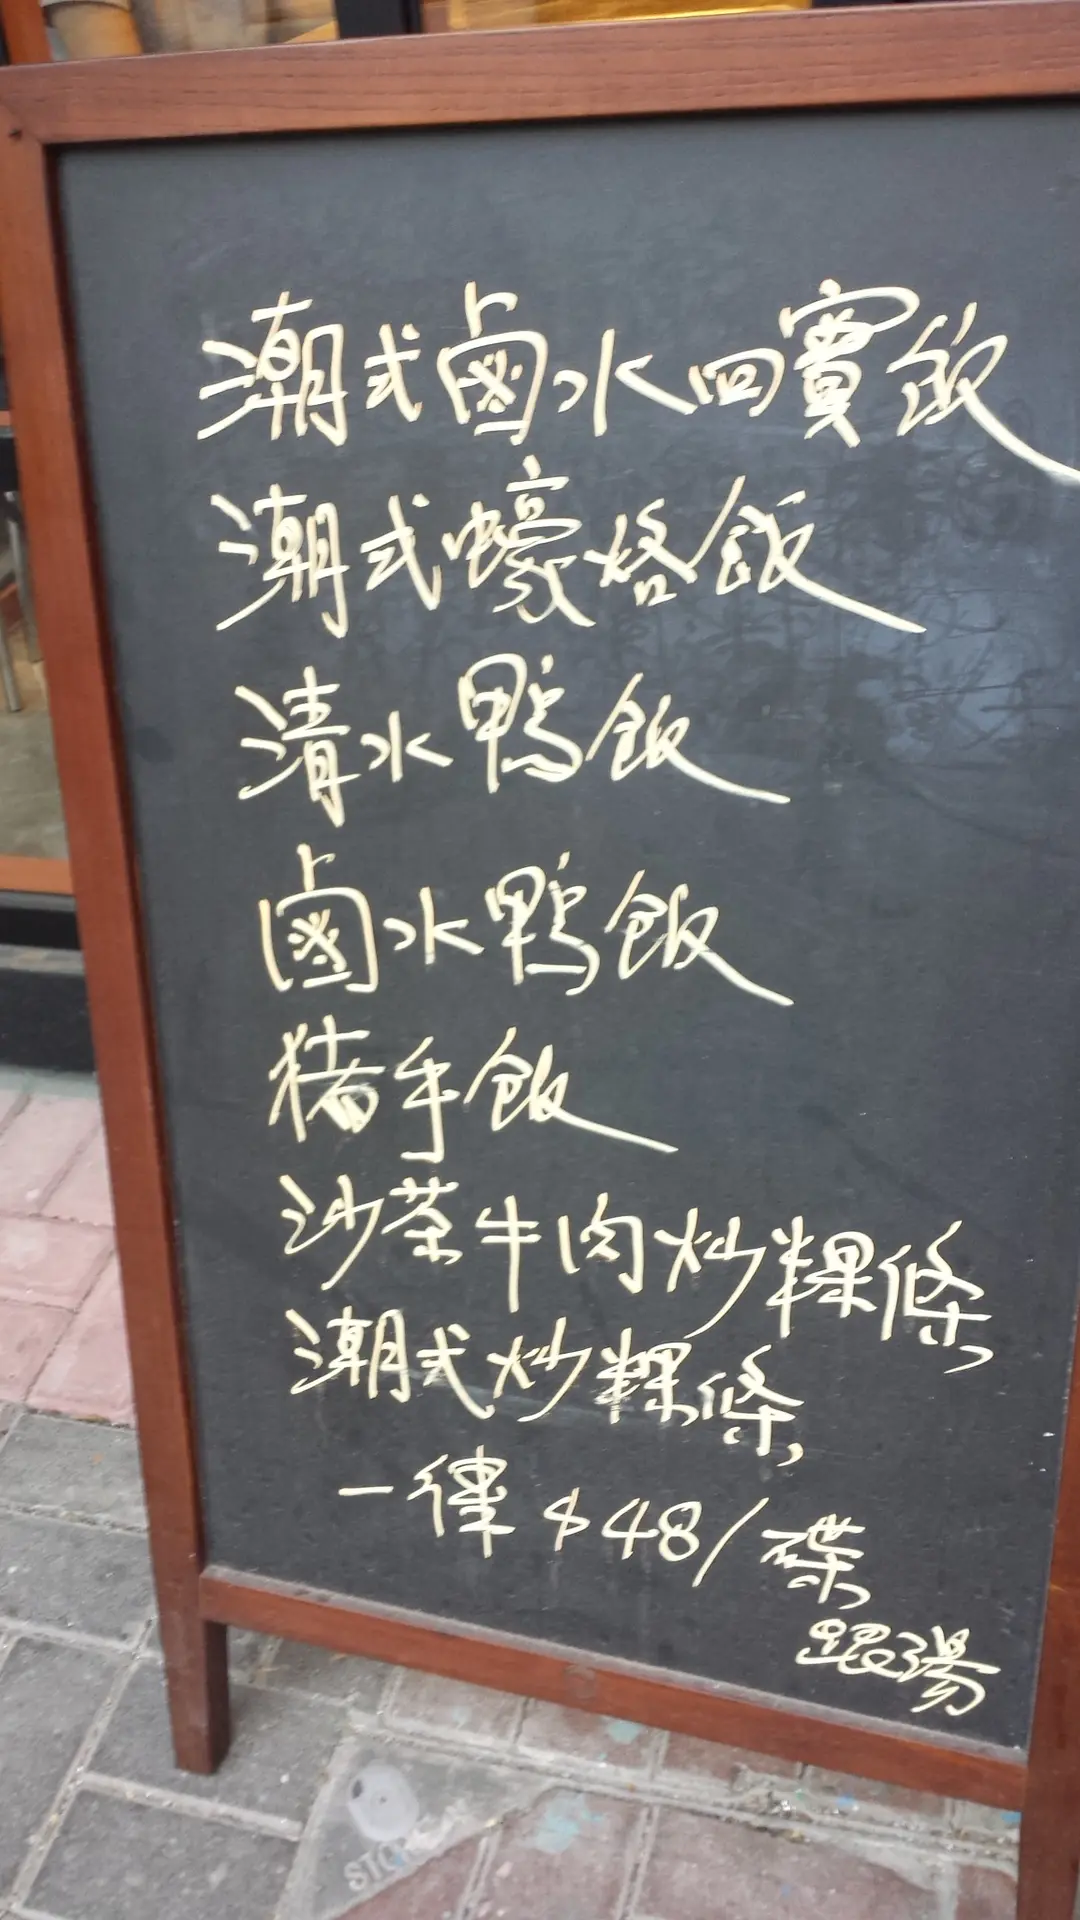 潮式鹵水四寶飯
潮式蠔烙飯
清水鴨飯
鹵水鴨飯
猪手飯
沙茶牛肉炒粿條
潮式炒粿條
一律 $48/碟
跟湯